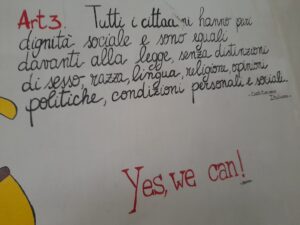 Art 3. Tutti i cittadini hanno pari
dignità sociale e sono eguali
davanti alla legge, senza distinzioni
di sesso, razza, lingua, religione, opinioni
politiche, condizioni personali e sociali.
Yes, we can!